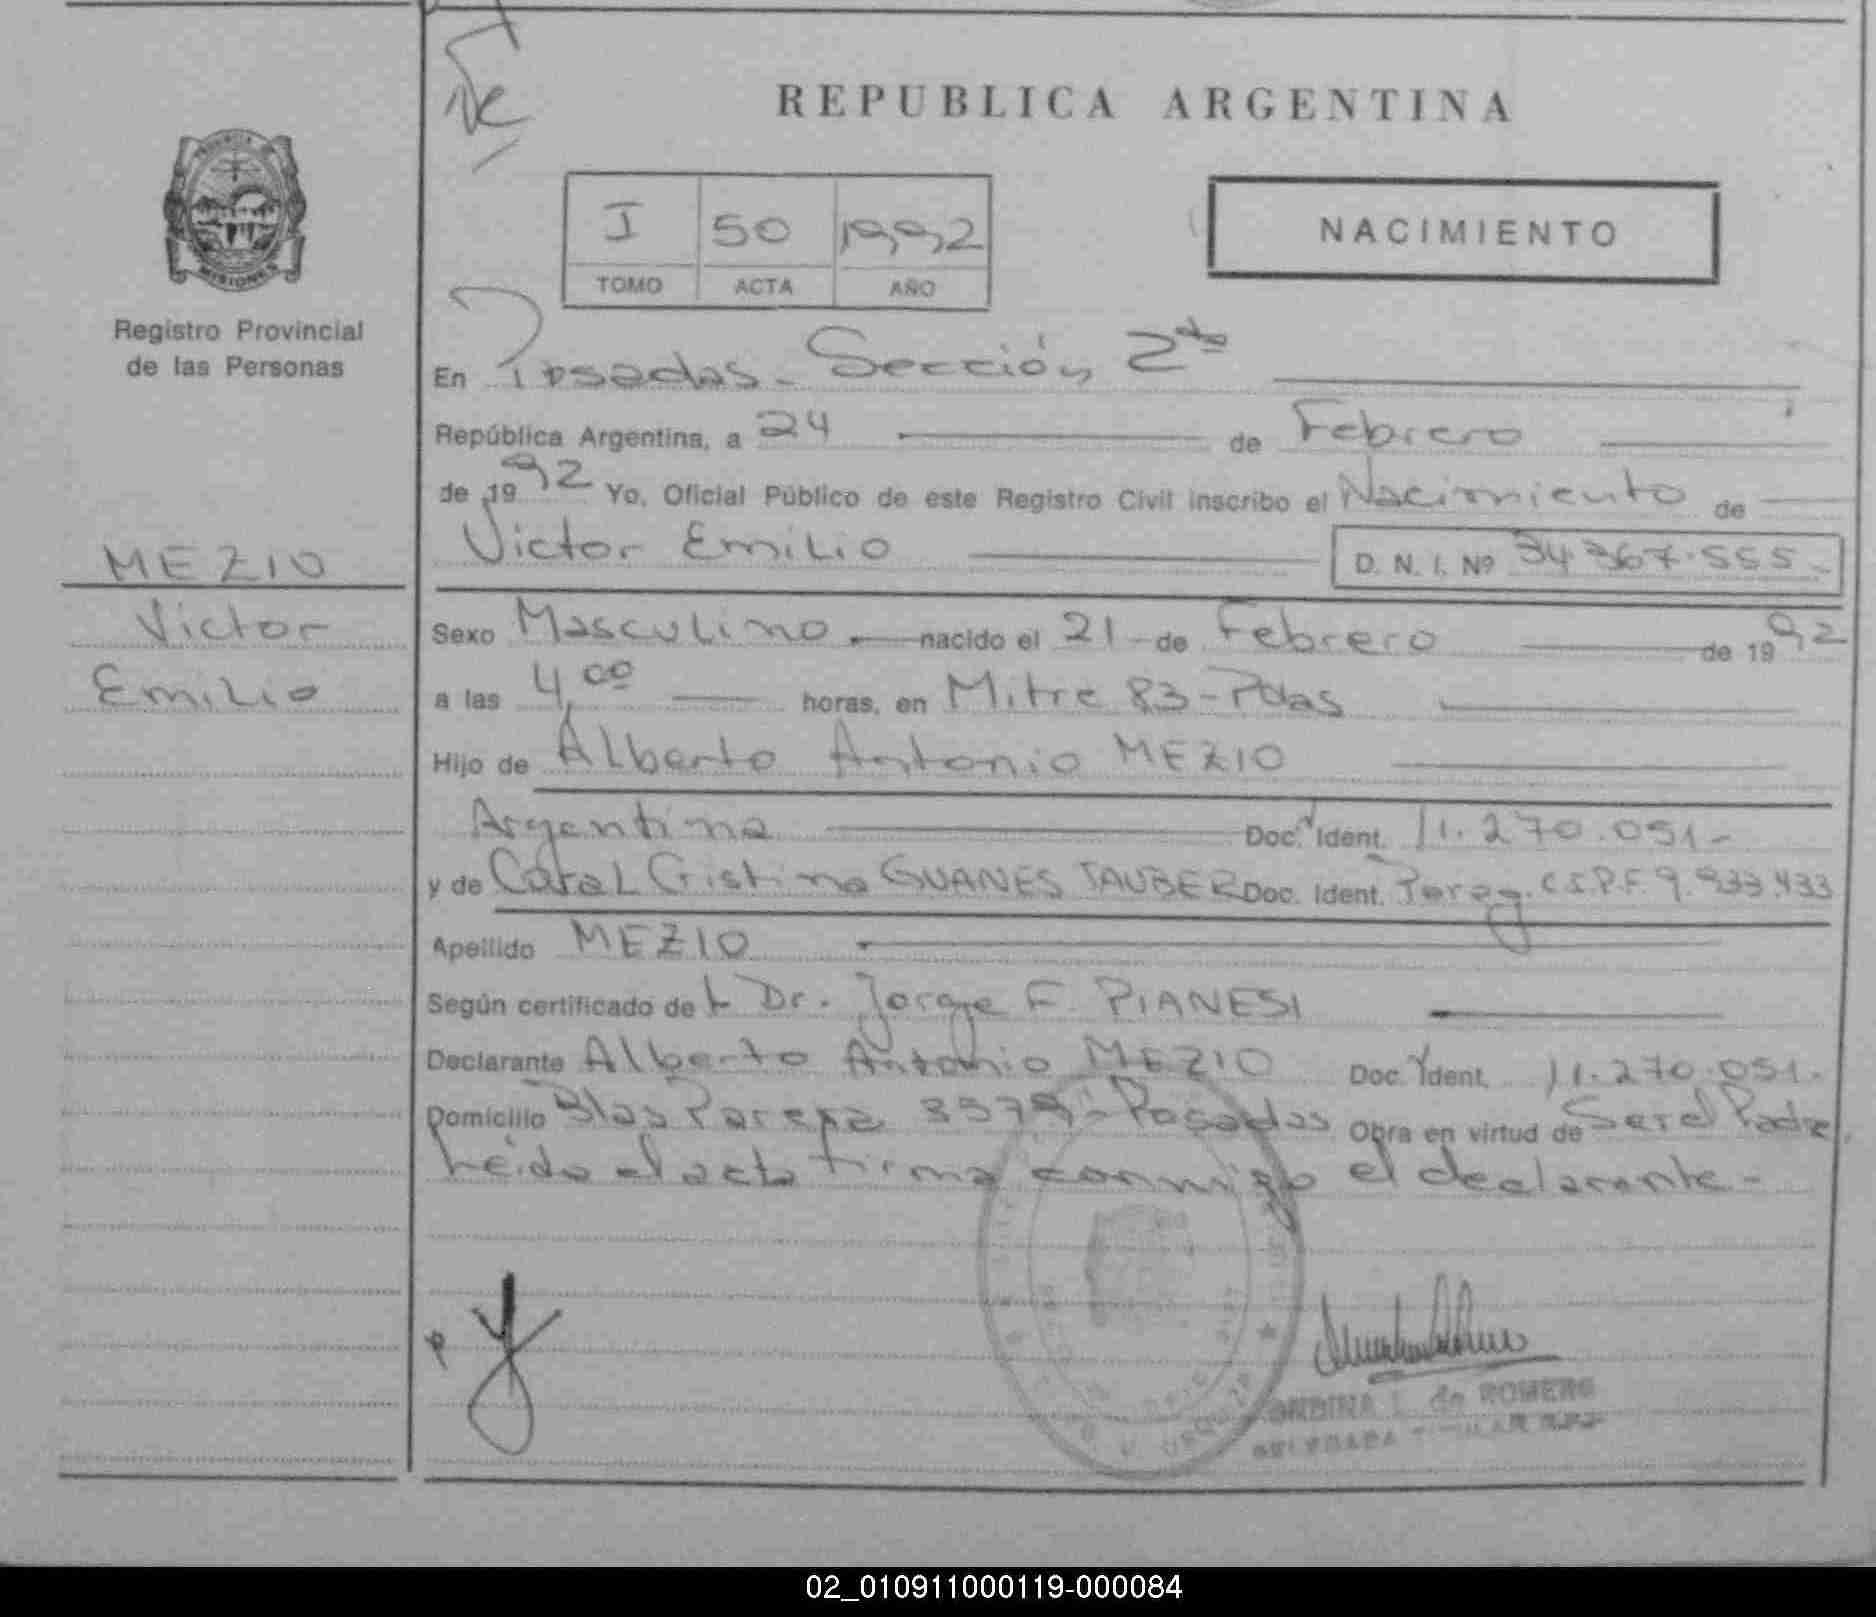 REPUBLICA ARGENTINA
I 50 1992
TOMO ACTA AÑO
NACIMIENTO
MISIONES
Registro Provincial
de las Personas
En Posadas - Sección 2da
República Argentina, a 24 de Febrero
de 1992 Yo, Oficial Público de este Registro Civil inscribo el Nacimiento de
Victor Emilio D. N. I. Nº 34.367.555.-
MEZIO
Victor
Emilio
Sexo Masculino nacido el 21 de Febrero de 1992
a las 4,00 horas, en Mitre 83 - Pdas
Hijo de Alberto Antonio MEZIO
Argentina Doc. Ident. 11.270.051.-
y de Carol Cristina GUANES TAUBER Doc. Ident. Parag. C.I.P.F. 9.933.433
Apellido MEZIO
Según certificado del Dr. Jorge F. PIANESI
Declarante Alberto Antonio MEZIO Doc. Ident. 11.270.051.-
Domicilio Blas Parera Posadas Obra en virtud de Ser el Padre.
Leída el acta firma conmigo el declarante.-
ONDINA L. de ROMERO
DELEGADA TITULAR
02_010911000119-000084